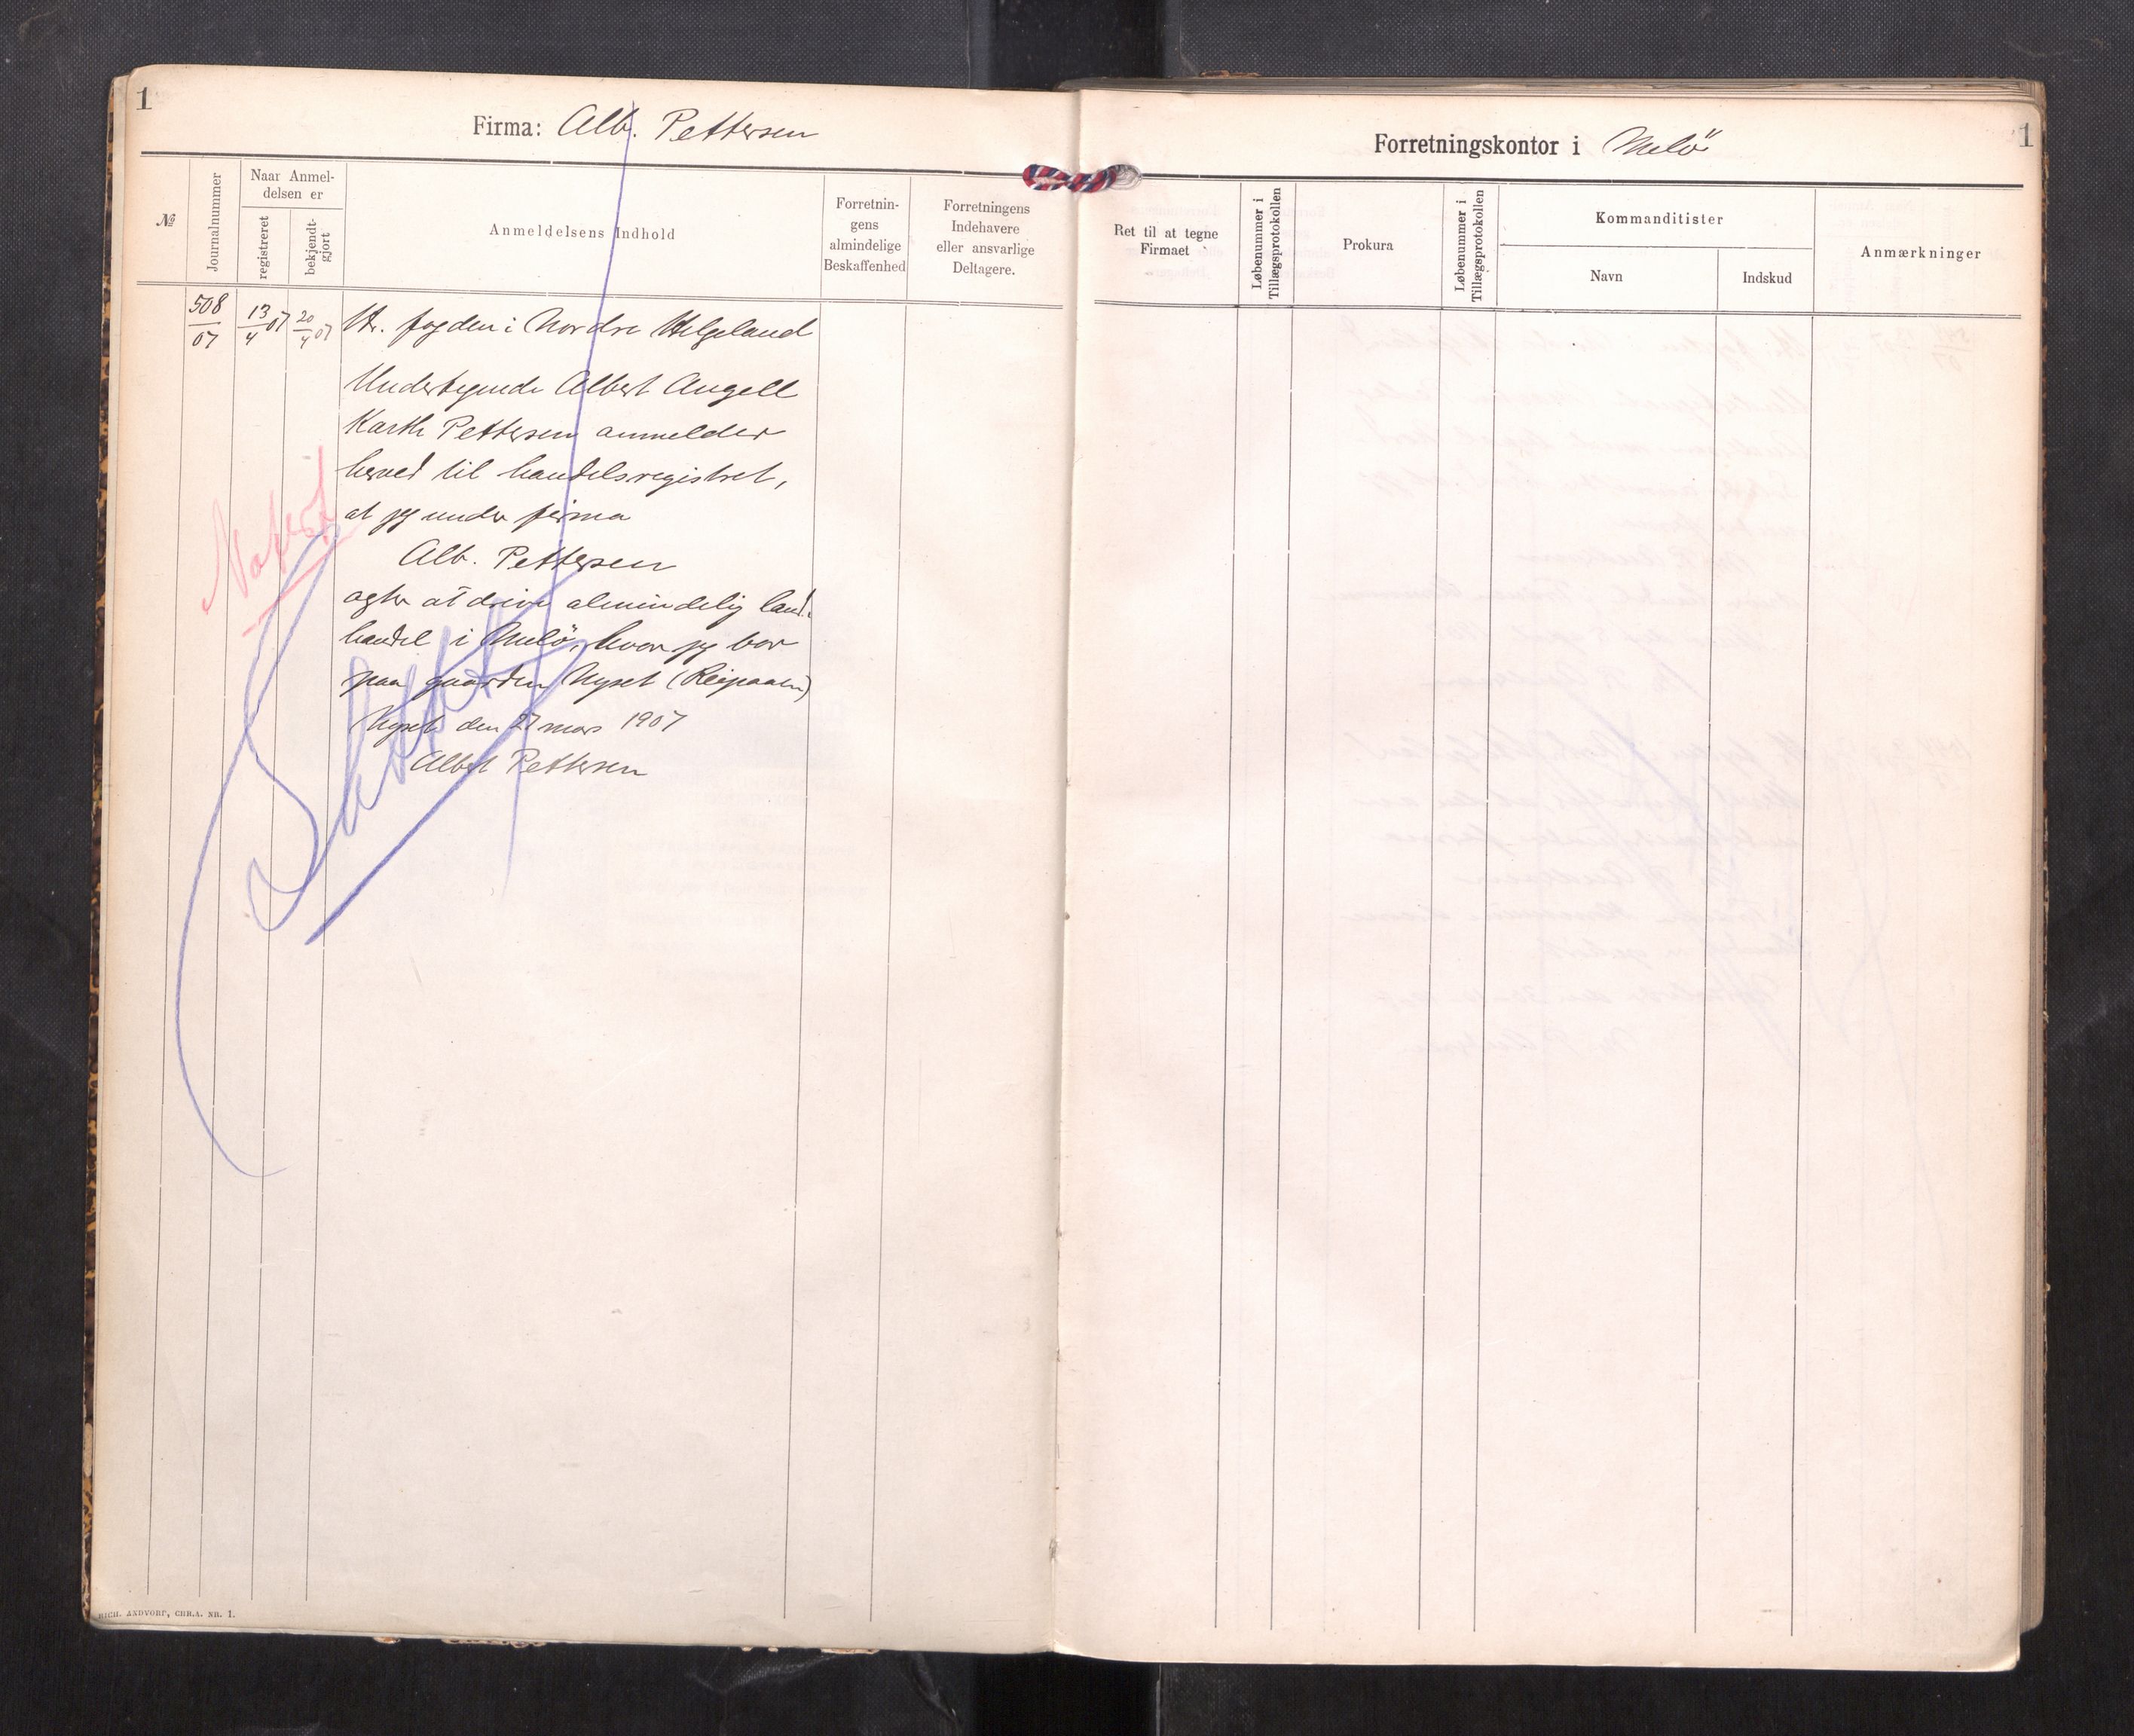 1
Firma: Alb. Pettersen
№
Journalnummer
Naar Anmel-
delsen er
registreret
bekjendt-
gjort
Anmeldelsens Indhold
Forretnin-
gens
almindelige
Beskaffenhed
Forretningens
Indehavere
eller ansvarlige
Deltagere.
508
07
13
4 07
20
4 07
Hr. fogden i Nordre Helgeland
Undertegnede Albert Angell
Harth Pettersen anmelder
herved til handelsregistret,
at jeg under firma
Alb. Pettersen
agter at drive almindelig land-
handel i Melö, hvor jeg bor
paa gaarden Nyset (Reipaaen)
Nyset den 27 mars 1907
Albert Pettersen
Slettet
RICH. ANDVORD, CHR.A. NR. 1.
Forretningskontor i Melö
1
Ret til at tegne
Firmaet
Løbenummer i
Tillægsprotokollen
Prokura
Løbenummer i
Tillægsprotokollen
Kommanditister
Navn
Indskud
Anmærkninger